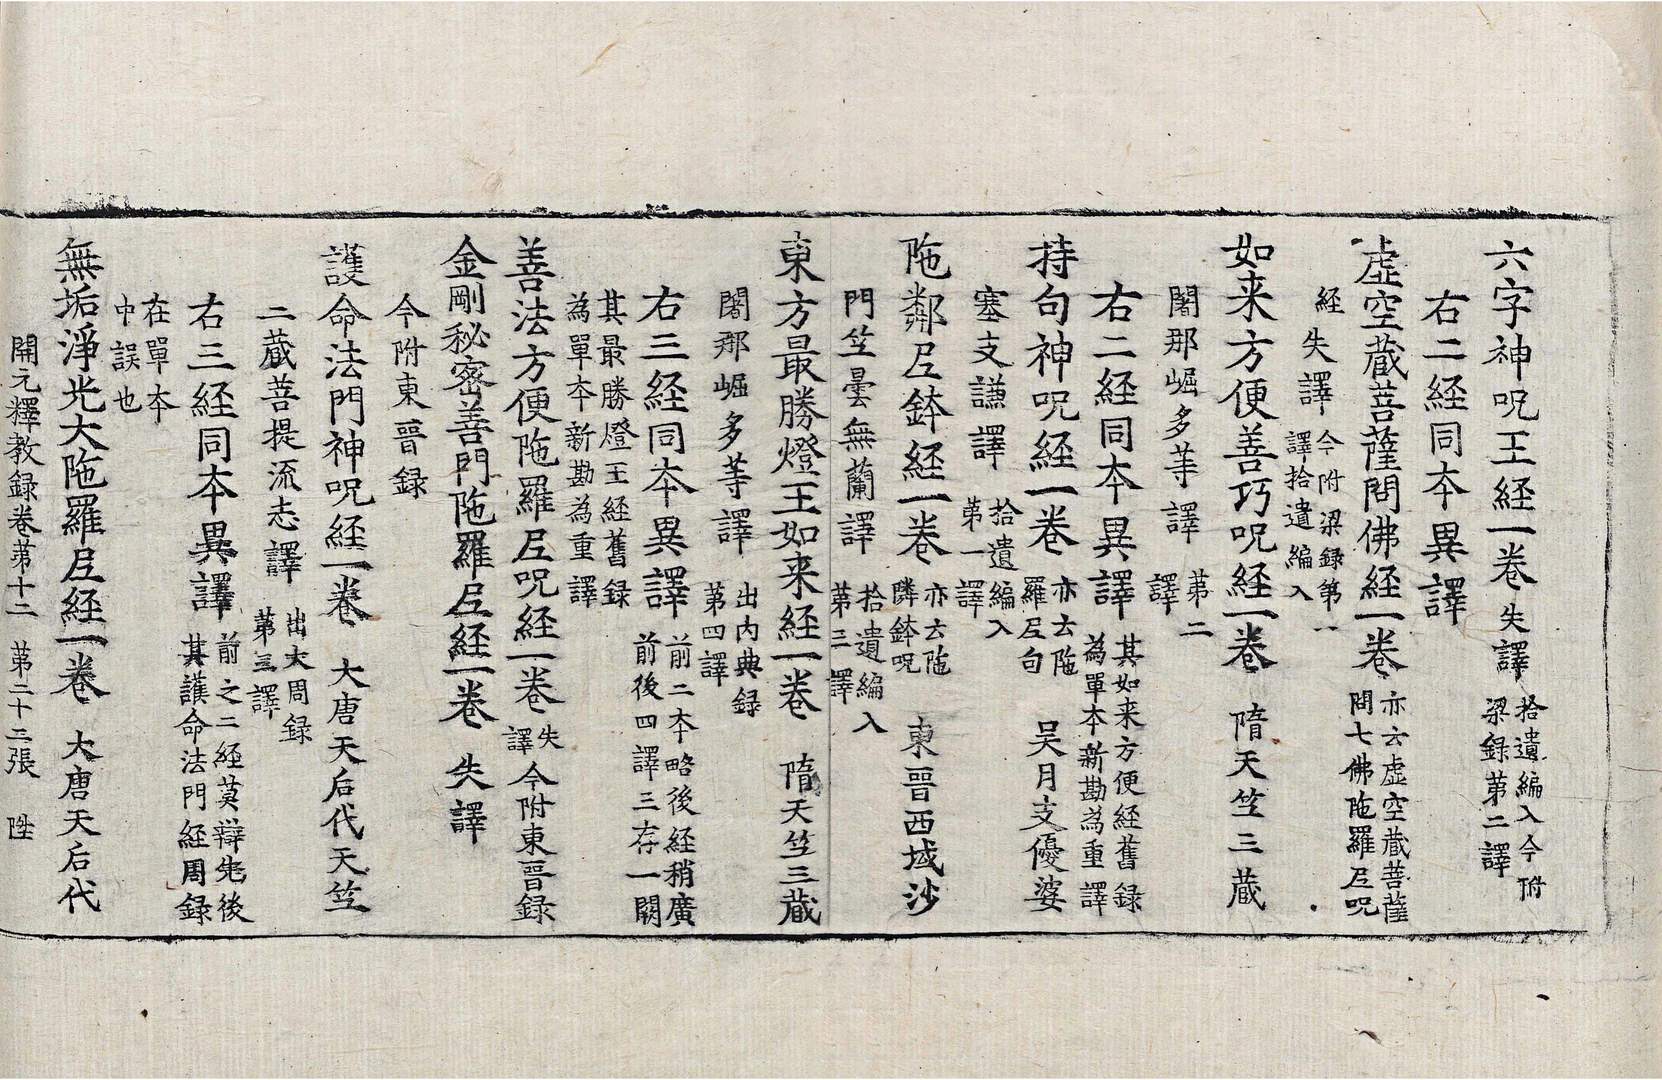 六字神呪王経一卷 失譯 拾遺編入今附
梁録第二譯
右二経同本異譯
虛空藏菩薩問佛経一卷 亦云虛空藏菩薩
問七佛陁羅尼呪
経 失譯 今附梁録第一
譯拾遺編入
如来方便善巧呪経一卷 隋天竺三藏
闍那崛多等譯 第二
譯
右二経同本異譯 其如来方便経舊録
為單本新勘為重譯
持句神呪経一卷 亦云陁
羅尼句 吴月支優婆
塞支謙譯 拾遺編入
第一譯
陁鄰尼鉢経一卷 亦云陁
隣鉢呪 東晉西域沙
門竺曇無蘭譯 拾遺編入
第三譯
東方最勝燈王如来経一卷 隋天竺三藏
闍那崛多等譯 出内典録
第四譯
右三経同本異譯 前二本略後経稍廣
前後四譯三存一闕
其最勝燈王経舊録
為單本新勘為重譯
善法方便陁羅尼呪経一卷 失
譯 今附東晉録
金剛秘密善門陁羅尼経一卷 失譯
今附東晉録
護命法門神呪経一卷 大唐天后代天竺
三藏菩提流志譯 出大周録
第三譯
右三経同本異譯 前之二経莫辯先後
其護命法門経周録
在單本
中誤也
無垢淨光大陁羅尼経一卷 大唐天后代
開元釋教録卷第十二 第二十二張 陞